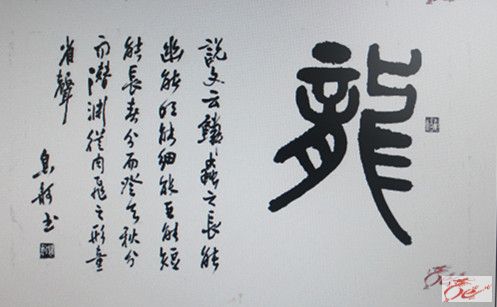 龍
説文云鱗蟲之長能
幽能明能細能巨能短
能長春分而登天秋分
而潛淵從肉飛之形童
省聲
书